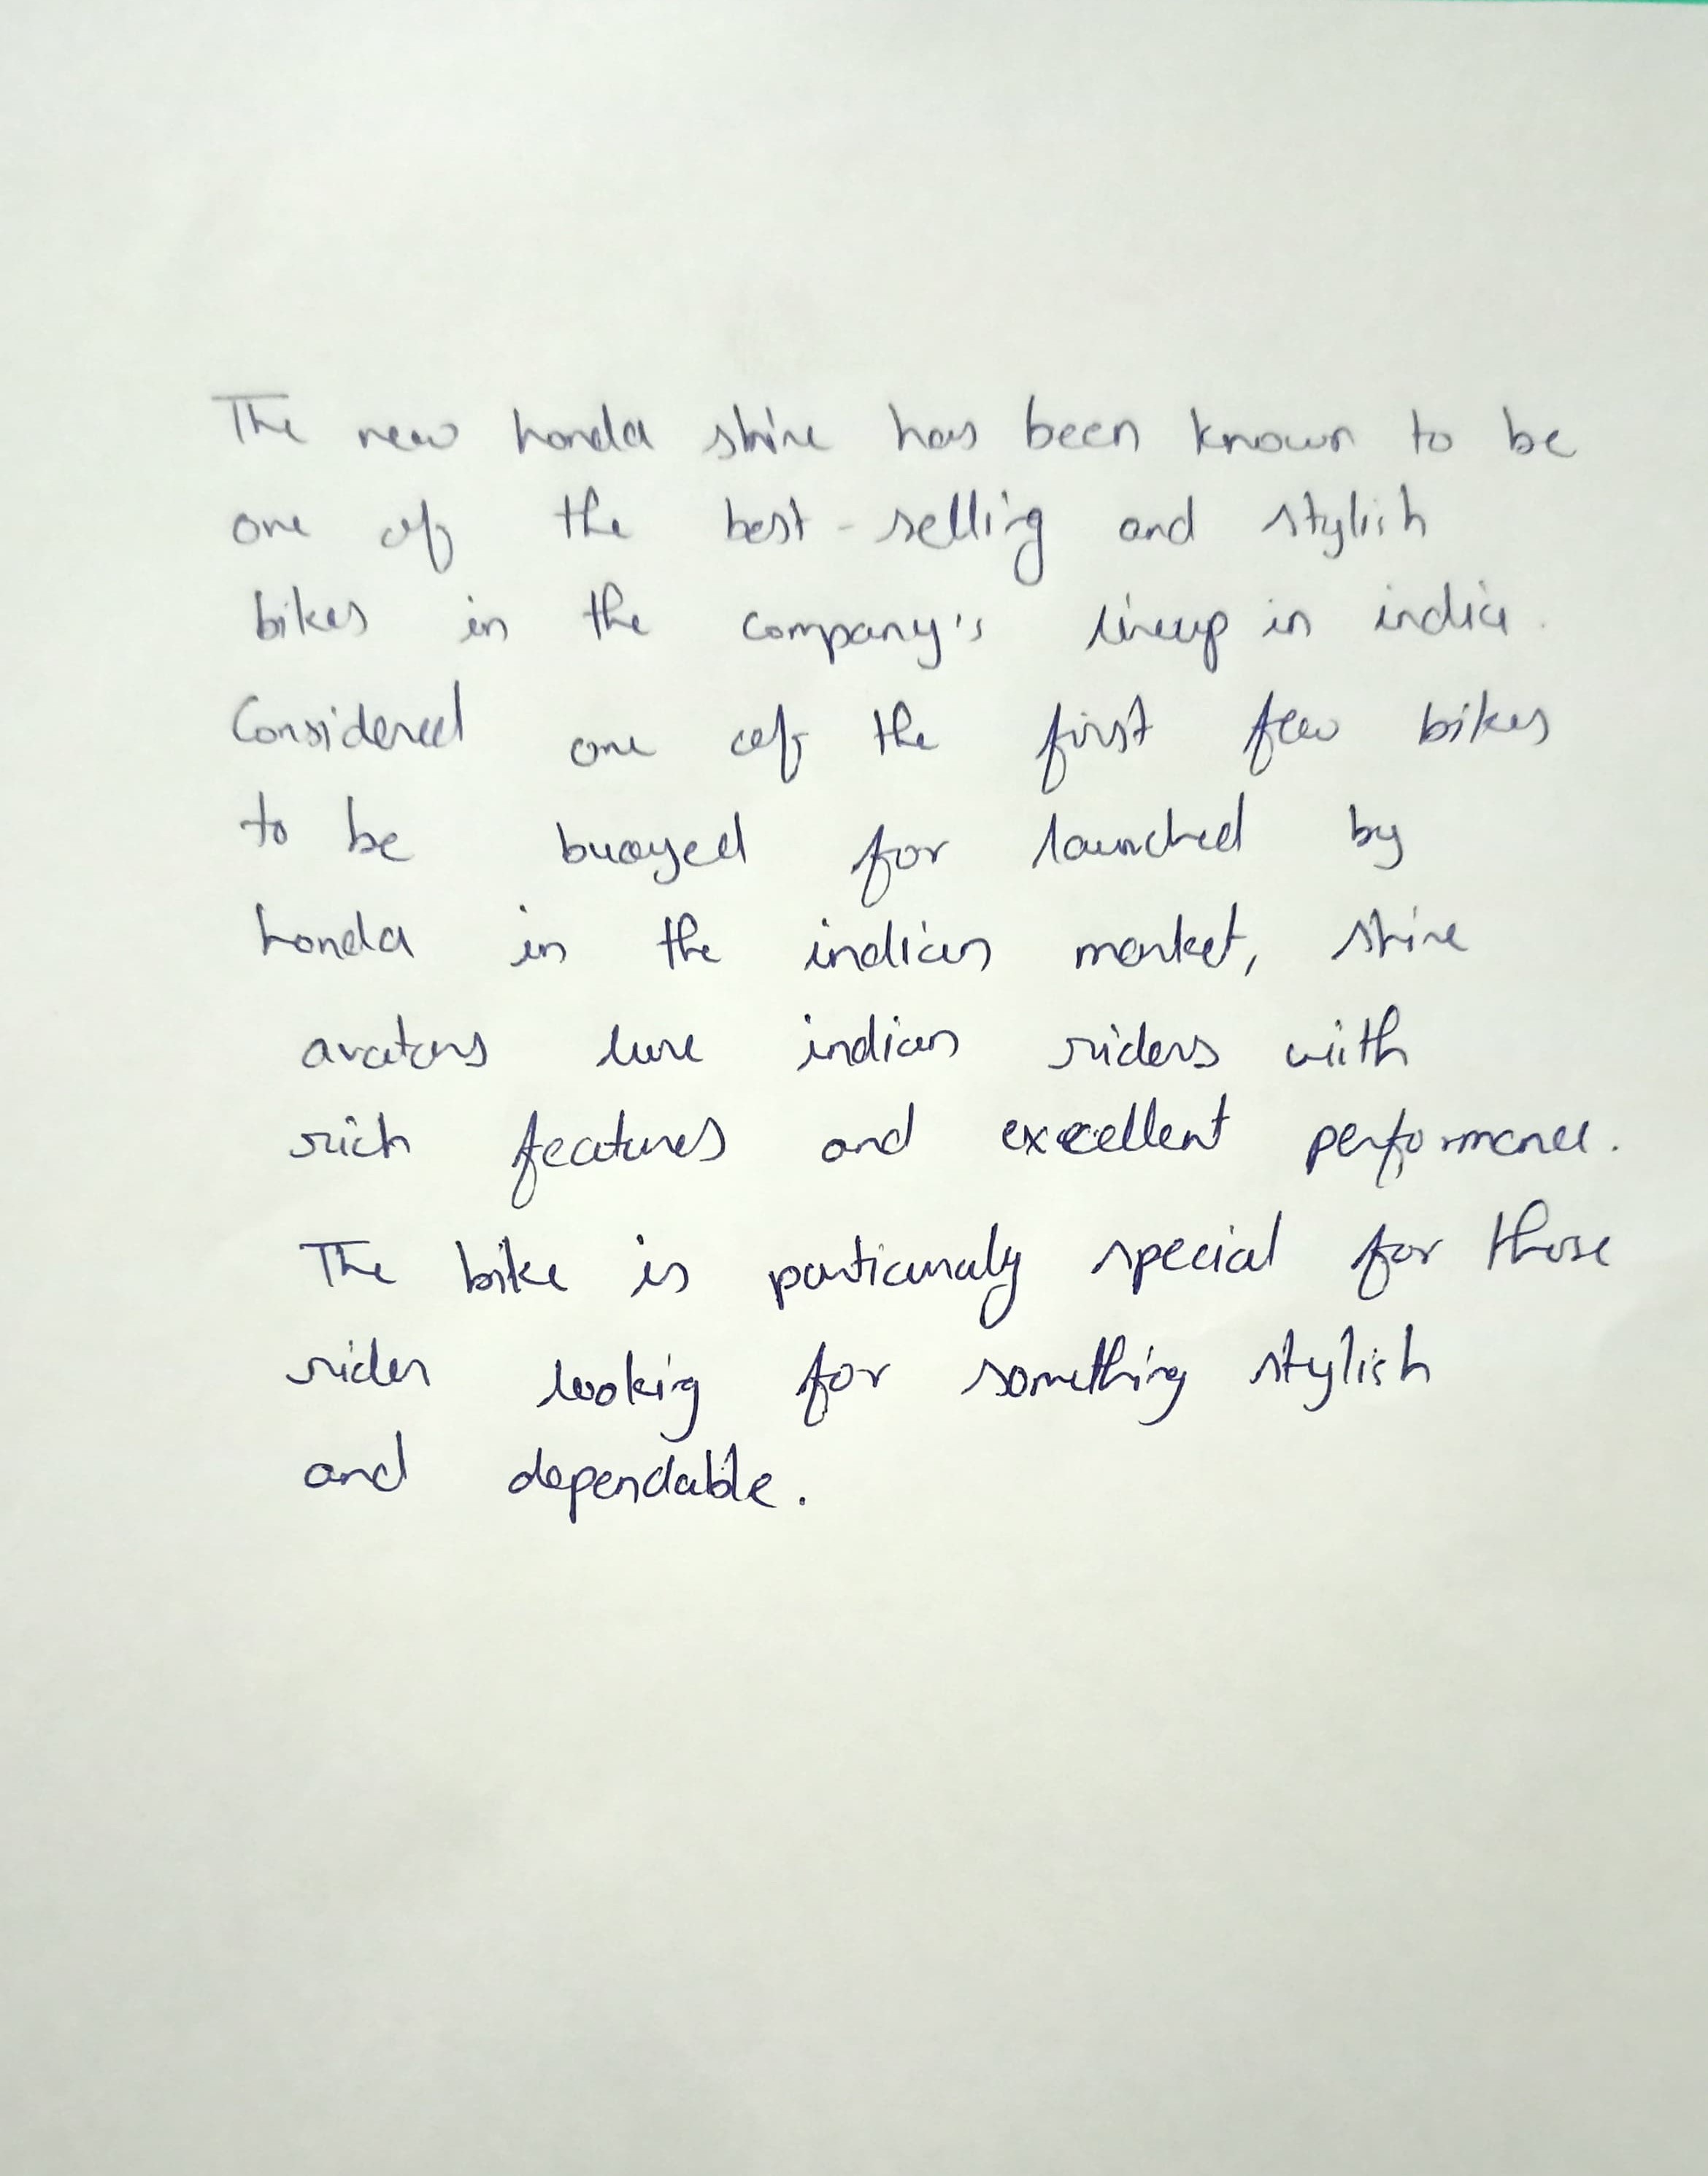 The new honda shine has been known to be
one of the best-selling and stylish
bikes in the company's lineup in india.
Considered one of the first few bikes
to be buoyed for launched by
honda in the indian market, shine
avatars lure indian riders with
rich features and excellent performance.
The bike is particuraly special for those
rider looking for something stylish
and dependable.